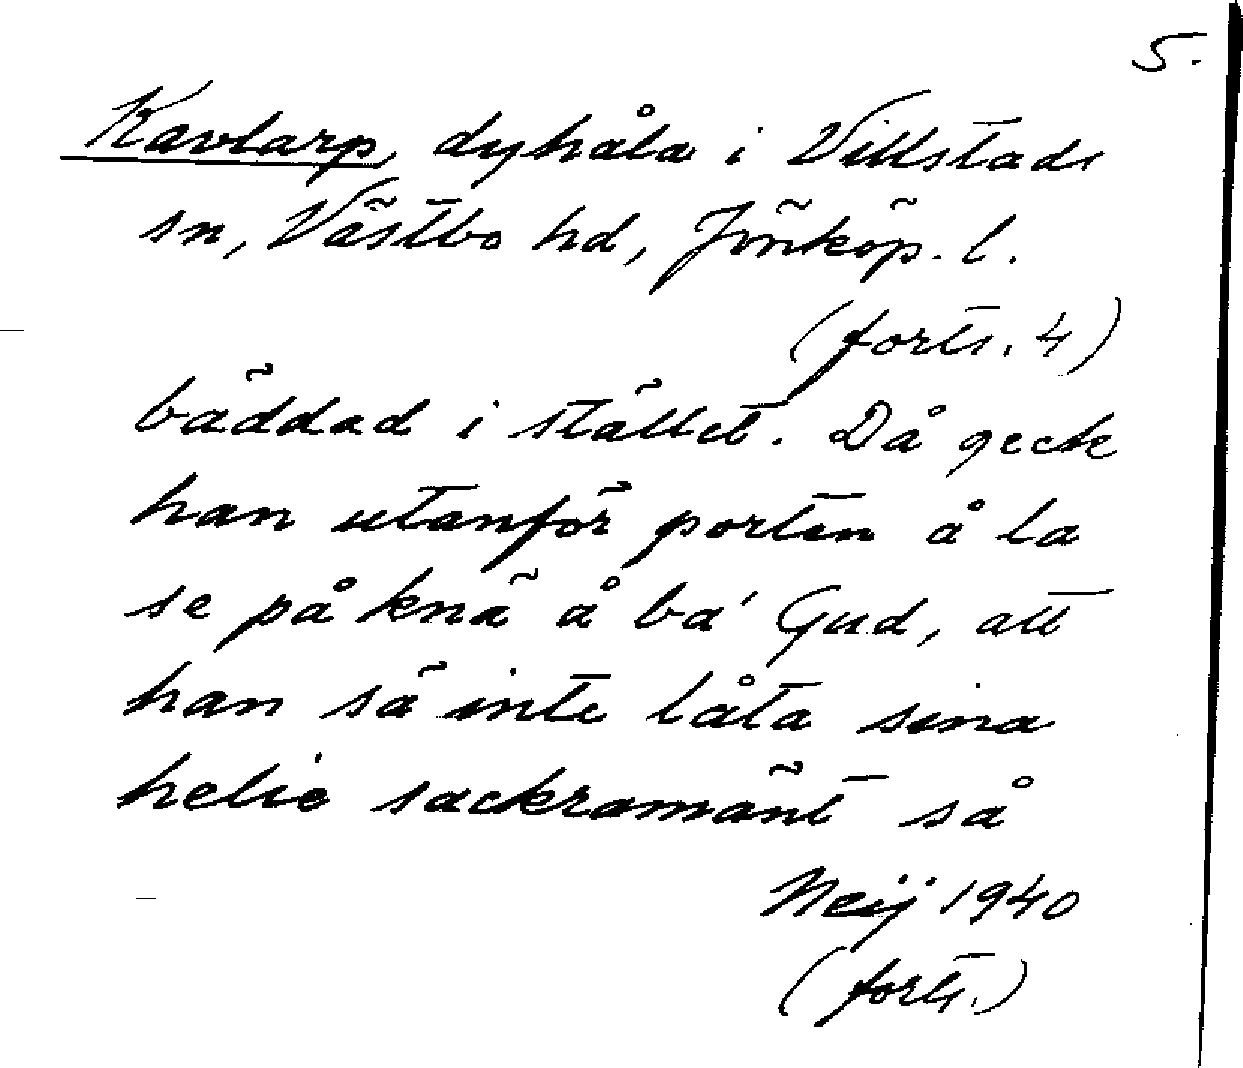 5.
Kavlarp, dyhåla i Villstads
sn, Västbo hd, Jönköp. l.
(forts. 4)
bäddad i stället. Då geck
han utanför porten å la
se på knä å ba' Gud, att
han sä inte låta sina
helie sackramänt så
Neij 1940
(forts.)